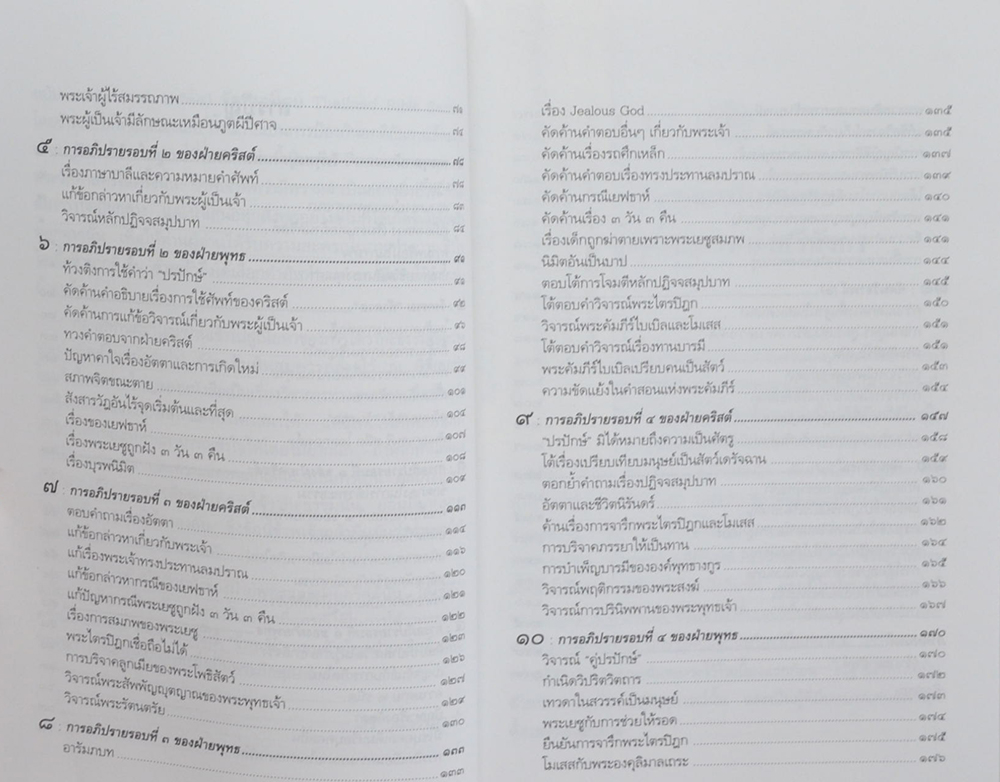 พระเจ้าผู้ไร้สมรรถภาพ ๗๑
พระผู้เป็นเจ้ามีลักษณะเหมือนภูตผีปีศาจ ๗๔
๕ : การอภิปรายรอบที่ ๒ ของฝ่ายคริสต์ ๗๘
เรื่องภาษาบาลีและความหมายคำศัพท์ ๗๘
แก้ข้อกล่าวหาเกี่ยวกับพระผู้เป็นเจ้า ๘๑
วิจารณ์หลักปฏิจจสมุปบาท ๘๔
๖ : การอภิปรายรอบที่ ๒ ของฝ่ายพุทธ ๙๑
ท้วงติงการใช้คำว่า "ปรปักษ์" ๙๑
คัดค้านคำอธิบายเรื่องการใช้ศัพท์ของคริสต์ ๙๒
คัดค้านการแก้ข้อวิจารณ์เกี่ยวกับพระผู้เป็นเจ้า ๙๖
ทวงคำตอบจากฝ่ายคริสต์ ๙๘
ปัญหาคาใจเรื่องอัตตาและการเกิดใหม่ ๙๙
สภาพจิตขณะตาย ๑๐๑
สังสารวัฏอันไร้จุดเริ่มต้นและที่สุด ๑๐๔
เรื่องของเยฟธาห์ ๑๐๗
เรื่องพระเยซูถูกฝัง ๓ วัน ๓ คืน ๑๐๘
เรื่องบุรพนิมิต ๑๐๙
๗ : การอภิปรายรอบที่ ๓ ของฝ่ายคริสต์ ๑๑๓
ตอบคำถามเรื่องอัตตา ๑๑๔
แก้ข้อกล่าวหาเกี่ยวกับพระเจ้า ๑๑๖
แก้เรื่องพระเจ้าทรงประทานลมปราณ ๑๒๐
แก้ข้อกล่าวหากรณีของเยฟธาห์ ๑๒๑
แก้ปัญหากรณีพระเยซูถูกฝัง ๓ วัน ๓ คืน ๑๒๒
เรื่องการสมภพของพระเยซู ๑๒๓
พระไตรปิฎกเชื่อถือไม่ได้ ๑๒๖
การบริจาคลูกเมียของพระโพธิสัตว์ ๑๒๗
วิจารณ์พระสัพพัญญุตญาณของพระพุทธเจ้า ๑๒๙
วิจารณ์พระรัตนตรัย ๑๓๐
๘ : การอภิปรายรอบที่ ๓ ของฝ่ายพุทธ ๑๓๓
อารัมภบท ๑๓๓
เรื่อง Jealous God ๑๓๕
คัดค้านคำตอบอื่นๆ เกี่ยวกับพระเจ้า ๑๓๕
คัดค้านเรื่องรถศึกเหล็ก ๑๓๗
คัดค้านคำตอบเรื่องทรงประทานลมปราณ ๑๓๙
คัดค้านกรณีเยฟธาห์ ๑๔๐
คัดค้านเรื่อง ๓ วัน ๓ คืน ๑๔๑
เรื่องเด็กถูกฆ่าตายเพราะพระเยซูสมภพ ๑๔๑
นิมิตอันเป็นบาป ๑๔๔
ตอบโต้การโจมตีหลักปฏิจจสมุปบาท ๑๔๕
โต้ตอบคำวิจารณ์พระไตรปิฎก ๑๕๐
วิจารณ์พระคัมภีร์ไบเบิลและโมเสส ๑๕๑
โต้ตอบคำวิจารณ์เรื่องทานบารมี ๑๕๑
พระคัมภีร์ไบเบิลเปรียบคนเป็นสัตว์ ๑๕๓
ความขัดแย้งในคำสอนแห่งพระคัมภีร์ ๑๕๔
๙ : การอภิปรายรอบที่ ๔ ของฝ่ายคริสต์ ๑๕๗
"ปรปักษ์" มิได้หมายถึงความเป็นศัตรู ๑๕๘
โต้เรื่องเปรียบเทียบมนุษย์เป็นสัตว์เดรัจฉาน ๑๕๙
ตอกย้ำคำถามเรื่องปฏิจจสมุปบาท ๑๖๐
อัตตาและชีวิตนิรันดร์ ๑๖๑
ค้านเรื่องการจารึกพระไตรปิฎกและโมเสส ๑๖๒
การบริจาคภรรยาให้เป็นทาน ๑๖๔
การบำเพ็ญบารมีขององค์พุทธางกูร ๑๖๕
วิจารณ์พฤติกรรมของพระสงฆ์ ๑๖๖
วิจารณ์การปรินิพพานของพระพุทธเจ้า ๑๖๗
๑๐ : การอภิปรายรอบที่ ๔ ของฝ่ายพุทธ ๑๗๐
วิจารณ์ "คู่ปรปักษ์" ๑๗๐
กำเนิดวิปริตวิตถาร ๑๗๒
เทวดาในสวรรค์เป็นมนุษย์ ๑๗๓
พระเยซูกับการช่วยให้รอด ๑๗๔
ยืนยันการจารึกพระไตรปิฎก ๑๗๕
โมเสสกับพระองคุลิมาลเถระ ๑๗๖